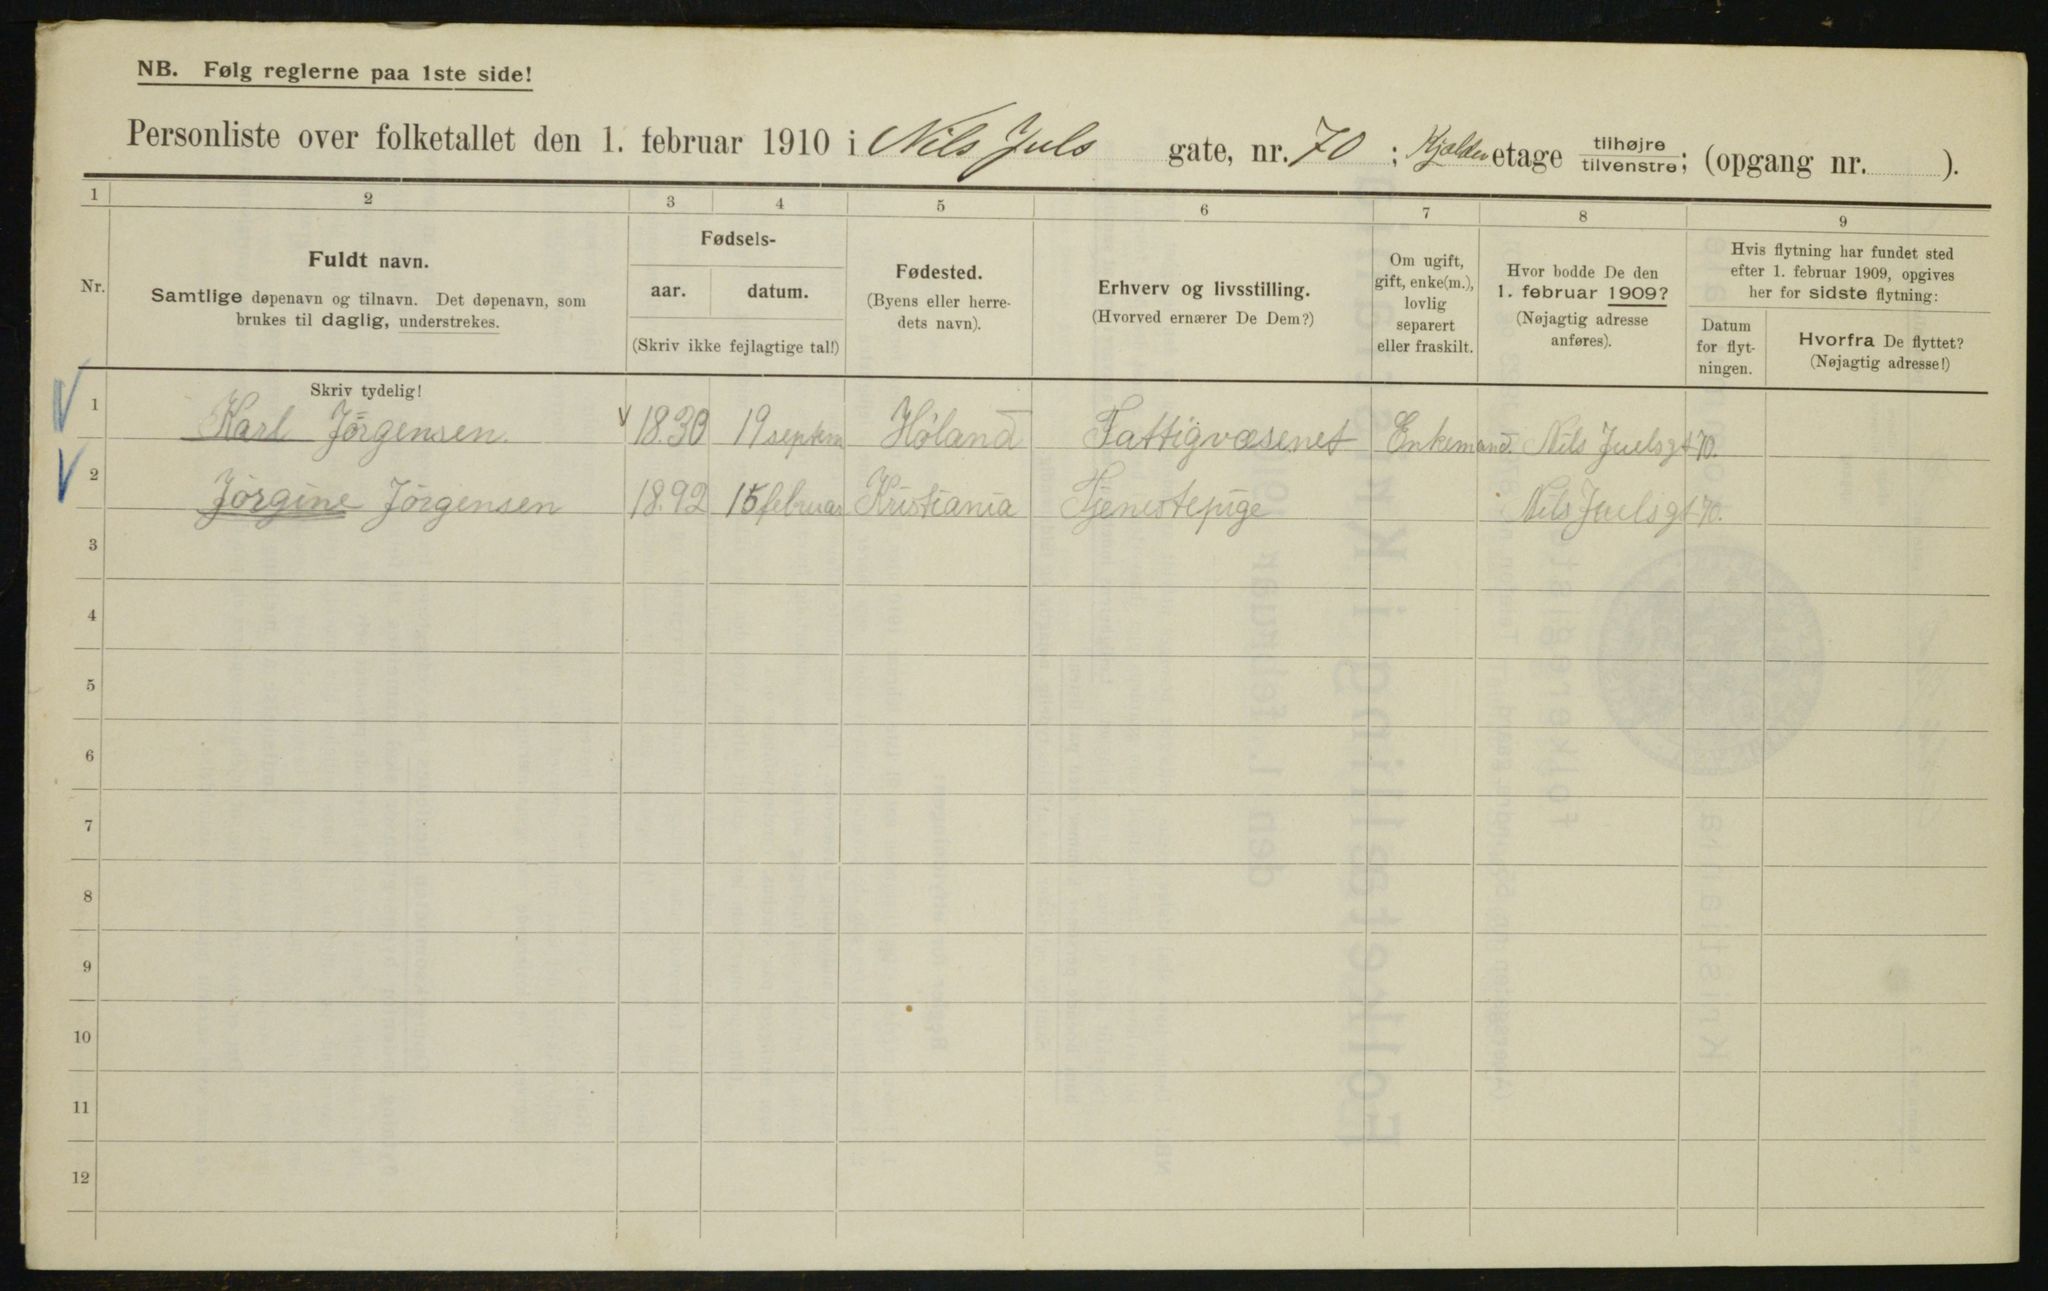 NB. Følg reglerne paa 1ste side!
Personliste over folketallet den 1. februar 1910 i Nils Juls gate, nr. 70 ; Kjælder etage tilhøjre tilvenstre; (opgang nr. ).
1 2 3 4 5 6 7 8 9
Nr.
Fuldt navn.
Samtlige døpenavn og tilnavn. Det døpenavn, som
brukes til daglig, understrekes.
Fødsels-
aar. datum.
(Skriv ikke fejlagtige tal!)
Fødested.
(Byens eller herre-
dets navn).
Erhverv og livsstilling.
(Hvorved ernærer De Dem?)
Om ugift,
gift, enke(m.),
lovlig
separert
eller fraskilt.
Hvor bodde De den
1. februar 1909?
(Nøjagtig adresse
anføres).
Hvis flytning har fundet sted
efter 1. februar 1909, opgives
her for sidste flytning:
Datum
for flyt-
ningen.
Hvorfra De flyttet?
(Nøjagtig adresse!)
Skriv tydelig!
1 Karl Jörgensen 1830 19 septem Høland Fattigvæsenet Enkemand. Nils Juelsgt 70.
2 Jörgine Jörgensen 1892 15 februar Kristiania Tjenestepige Nils Juelsgt 70.
3
4
5
6
7
8
9
10
11
12